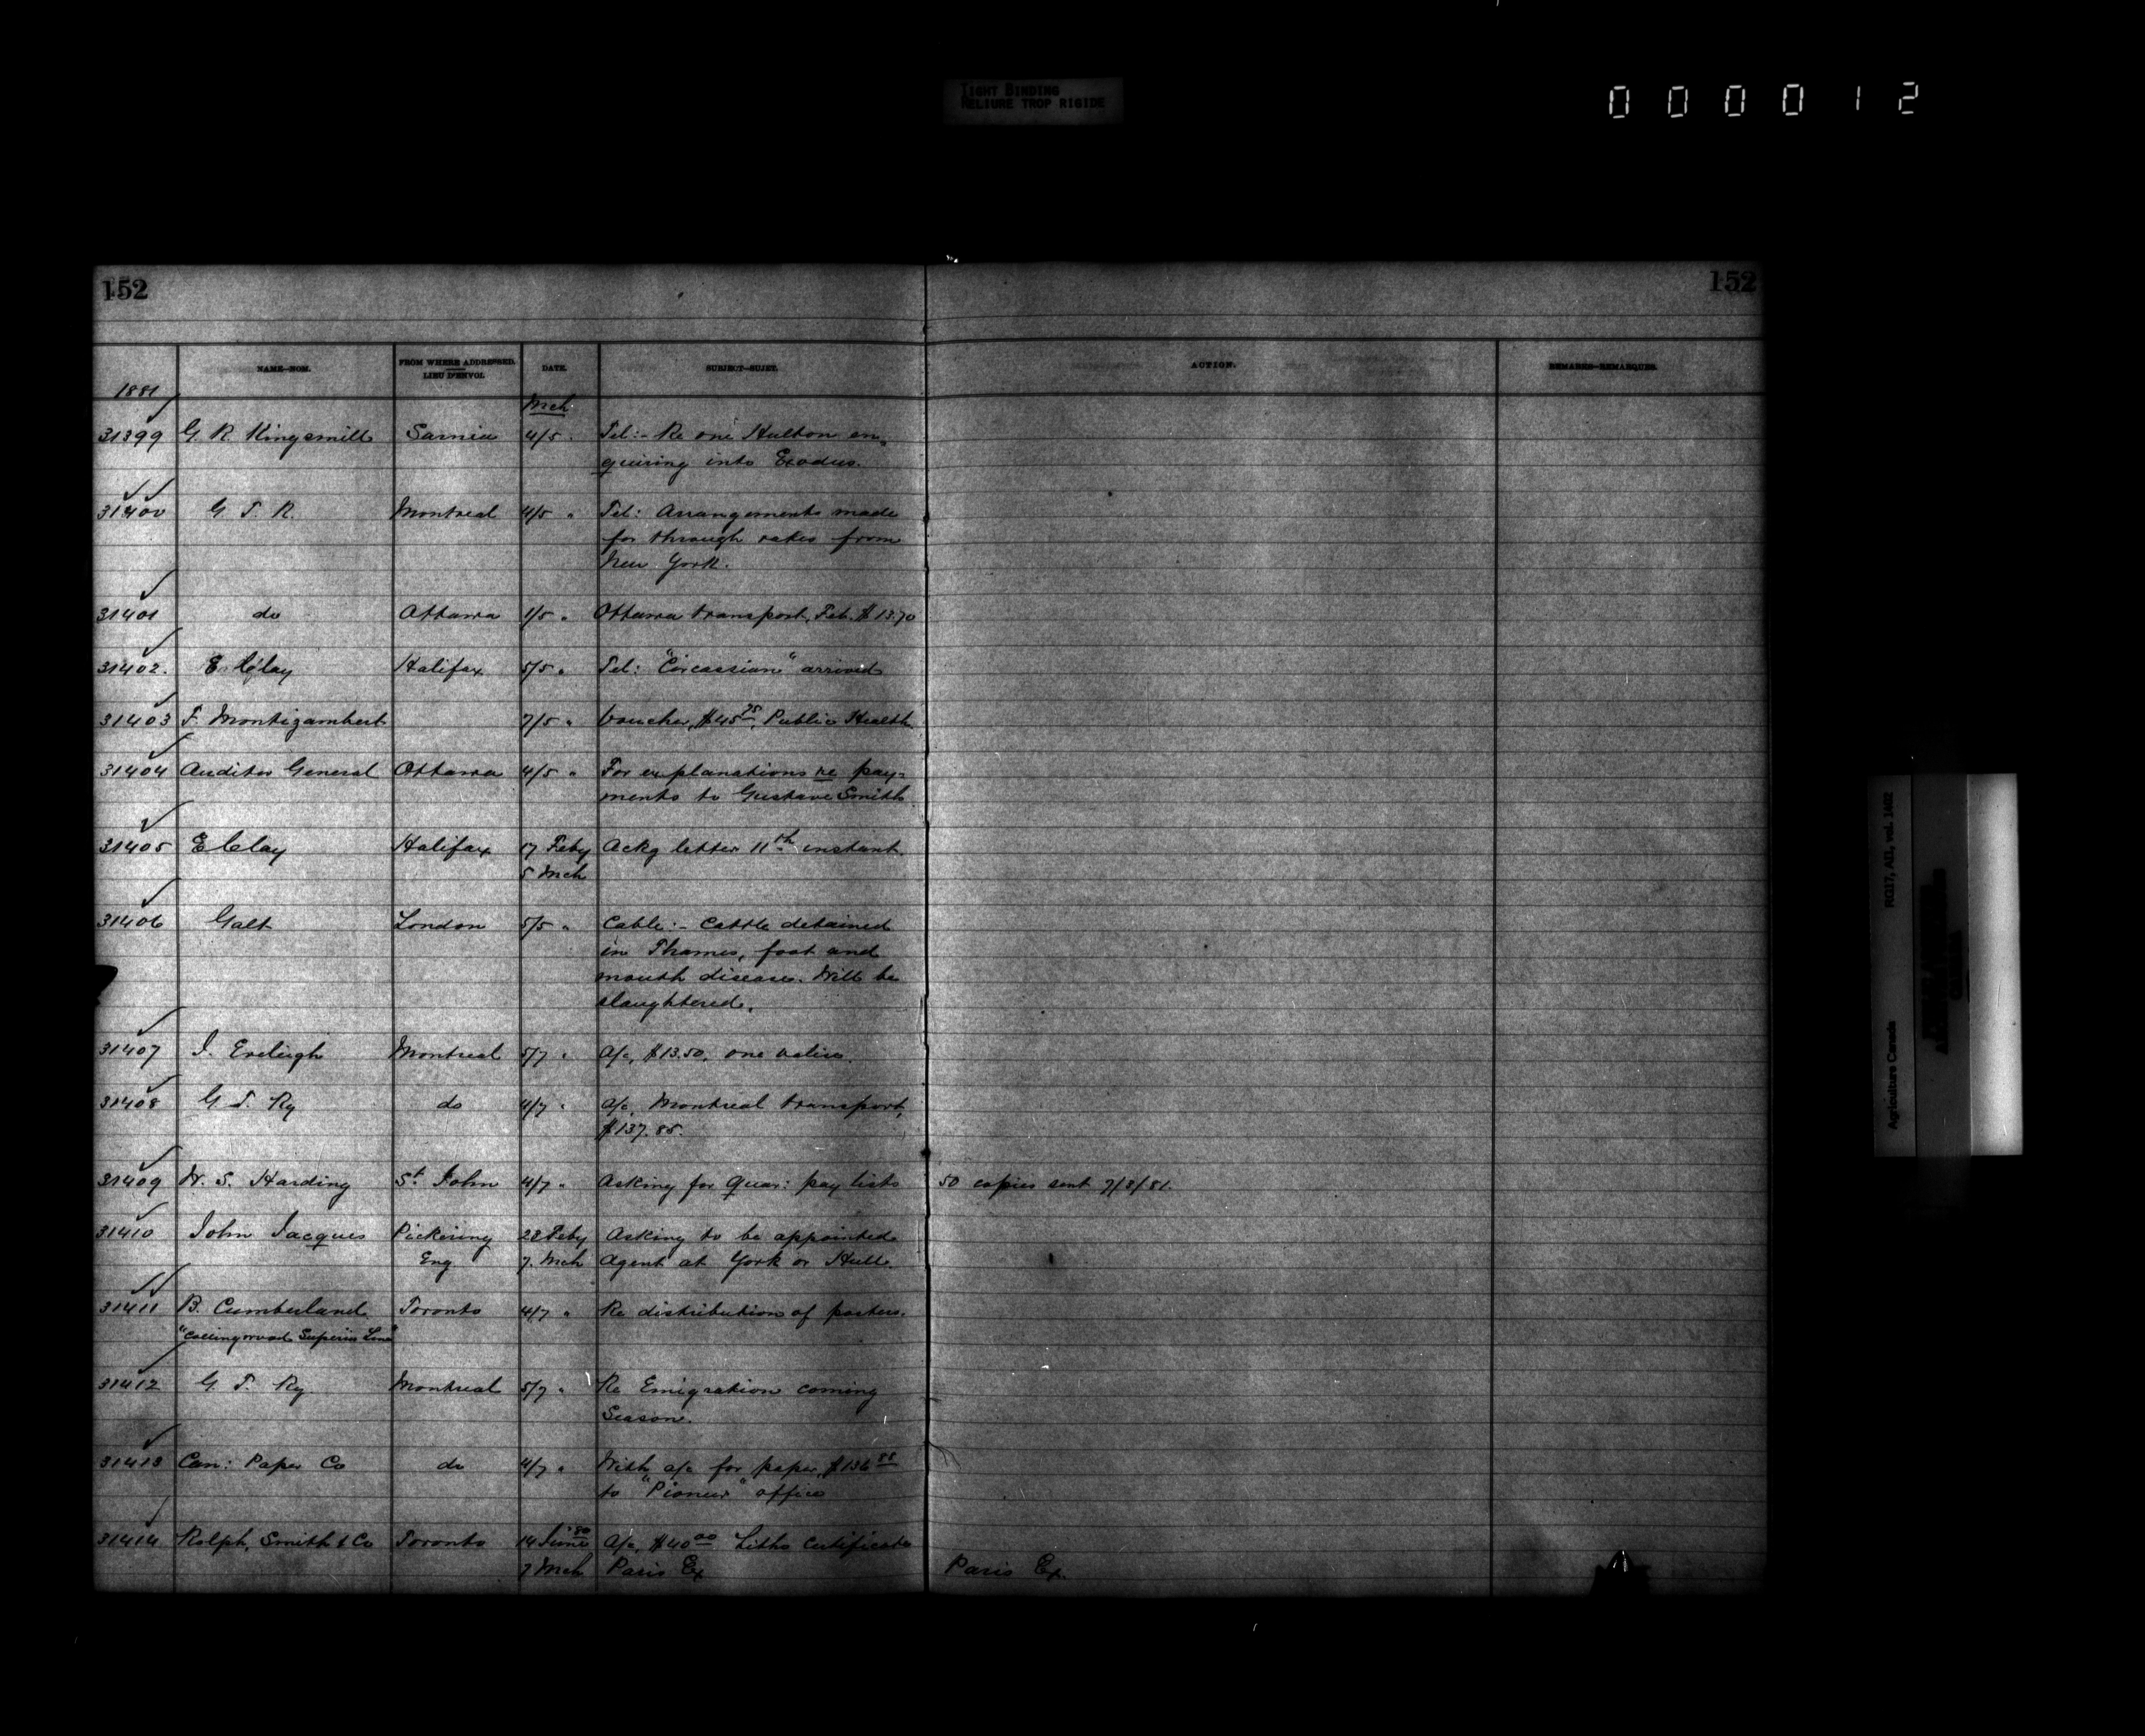 TIGHT BINDING
RELIURE TROP RIGIDE
000012
152 152
NAME—NOM. FROM WHERE ADDRESSED. LIEU D'ENVOI. DATE. SUBJECT—SUJET. ACTION. REMARKS—REMARQUES.
1881 Mch
31399 G. R. Kingsmill Sarnia 4/5 " Tel:- Re one Hulton en=
quiring into Exodus.
31400 G. T. R. Montreal 4/5 " Tel: Arrangements made
for through rates from
New York.
31401 do Ottawa 1/5 " Ottawa transport, Feb. $13.70
31402. E Clay Halifax 5/5 " Tel: "Circassian" arrived
31403 F. Montizambert 7/5 " Voucher, $45 75, Public Health
31404 Auditor General Ottawa 4/5 " For explanations re pay=
ments to Gustave Smith
31405 E Clay Halifax 17 Feby Ackg letter 11th instant.
5 Mch
31406 Galt London 5/5 " Cable:- Cattle detained
in Thames, foot and
mouth disease. Will be
slaughtered.
31407 I. Eveleigh Montreal 5/7 " a/c, $13.50, one valise.
31408 G. T. Ry do 4/7 " a/c, Montreal transport,
$137.85.
31409 W. S. Harding St John 4/7 " Asking for Quar: pay lists 50 copies sent 7/3/81.
31410 John Jacques Pickering 22 Feby Asking to be appointed
Eng 7. Mch Agent at York or Hull.
31411 B. Cumberland Toronto 4/7 " Re distribution of posters.
"Collingwood Superior Line"
31412 G. T. Ry Montreal 5/7 " Re Emigration coming
Season.
31413 Can: Paper Co do 4/7 " With a/c for paper, $136 88
to "Pioneer" office
31414 Rolph, Smith & Co Toronto 14 June '80 A/c, $40 00 Litho Certificate
7 Mch Paris Ex Paris Ex.
Agriculture Canada RG17, AII, vol. 1602